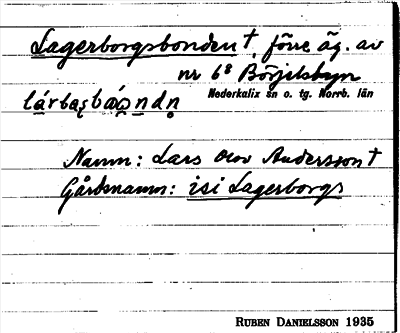 Lagerborgsbonden †, förre äg. av
nr 6⁸ Börjelsbyn
Nederkalix sn o. tg. Norrb. län
Namn: Lars Olov Andersson †
Gårdsnamn: isi Lagerborgs
RUBEN DANIELSSON 1935